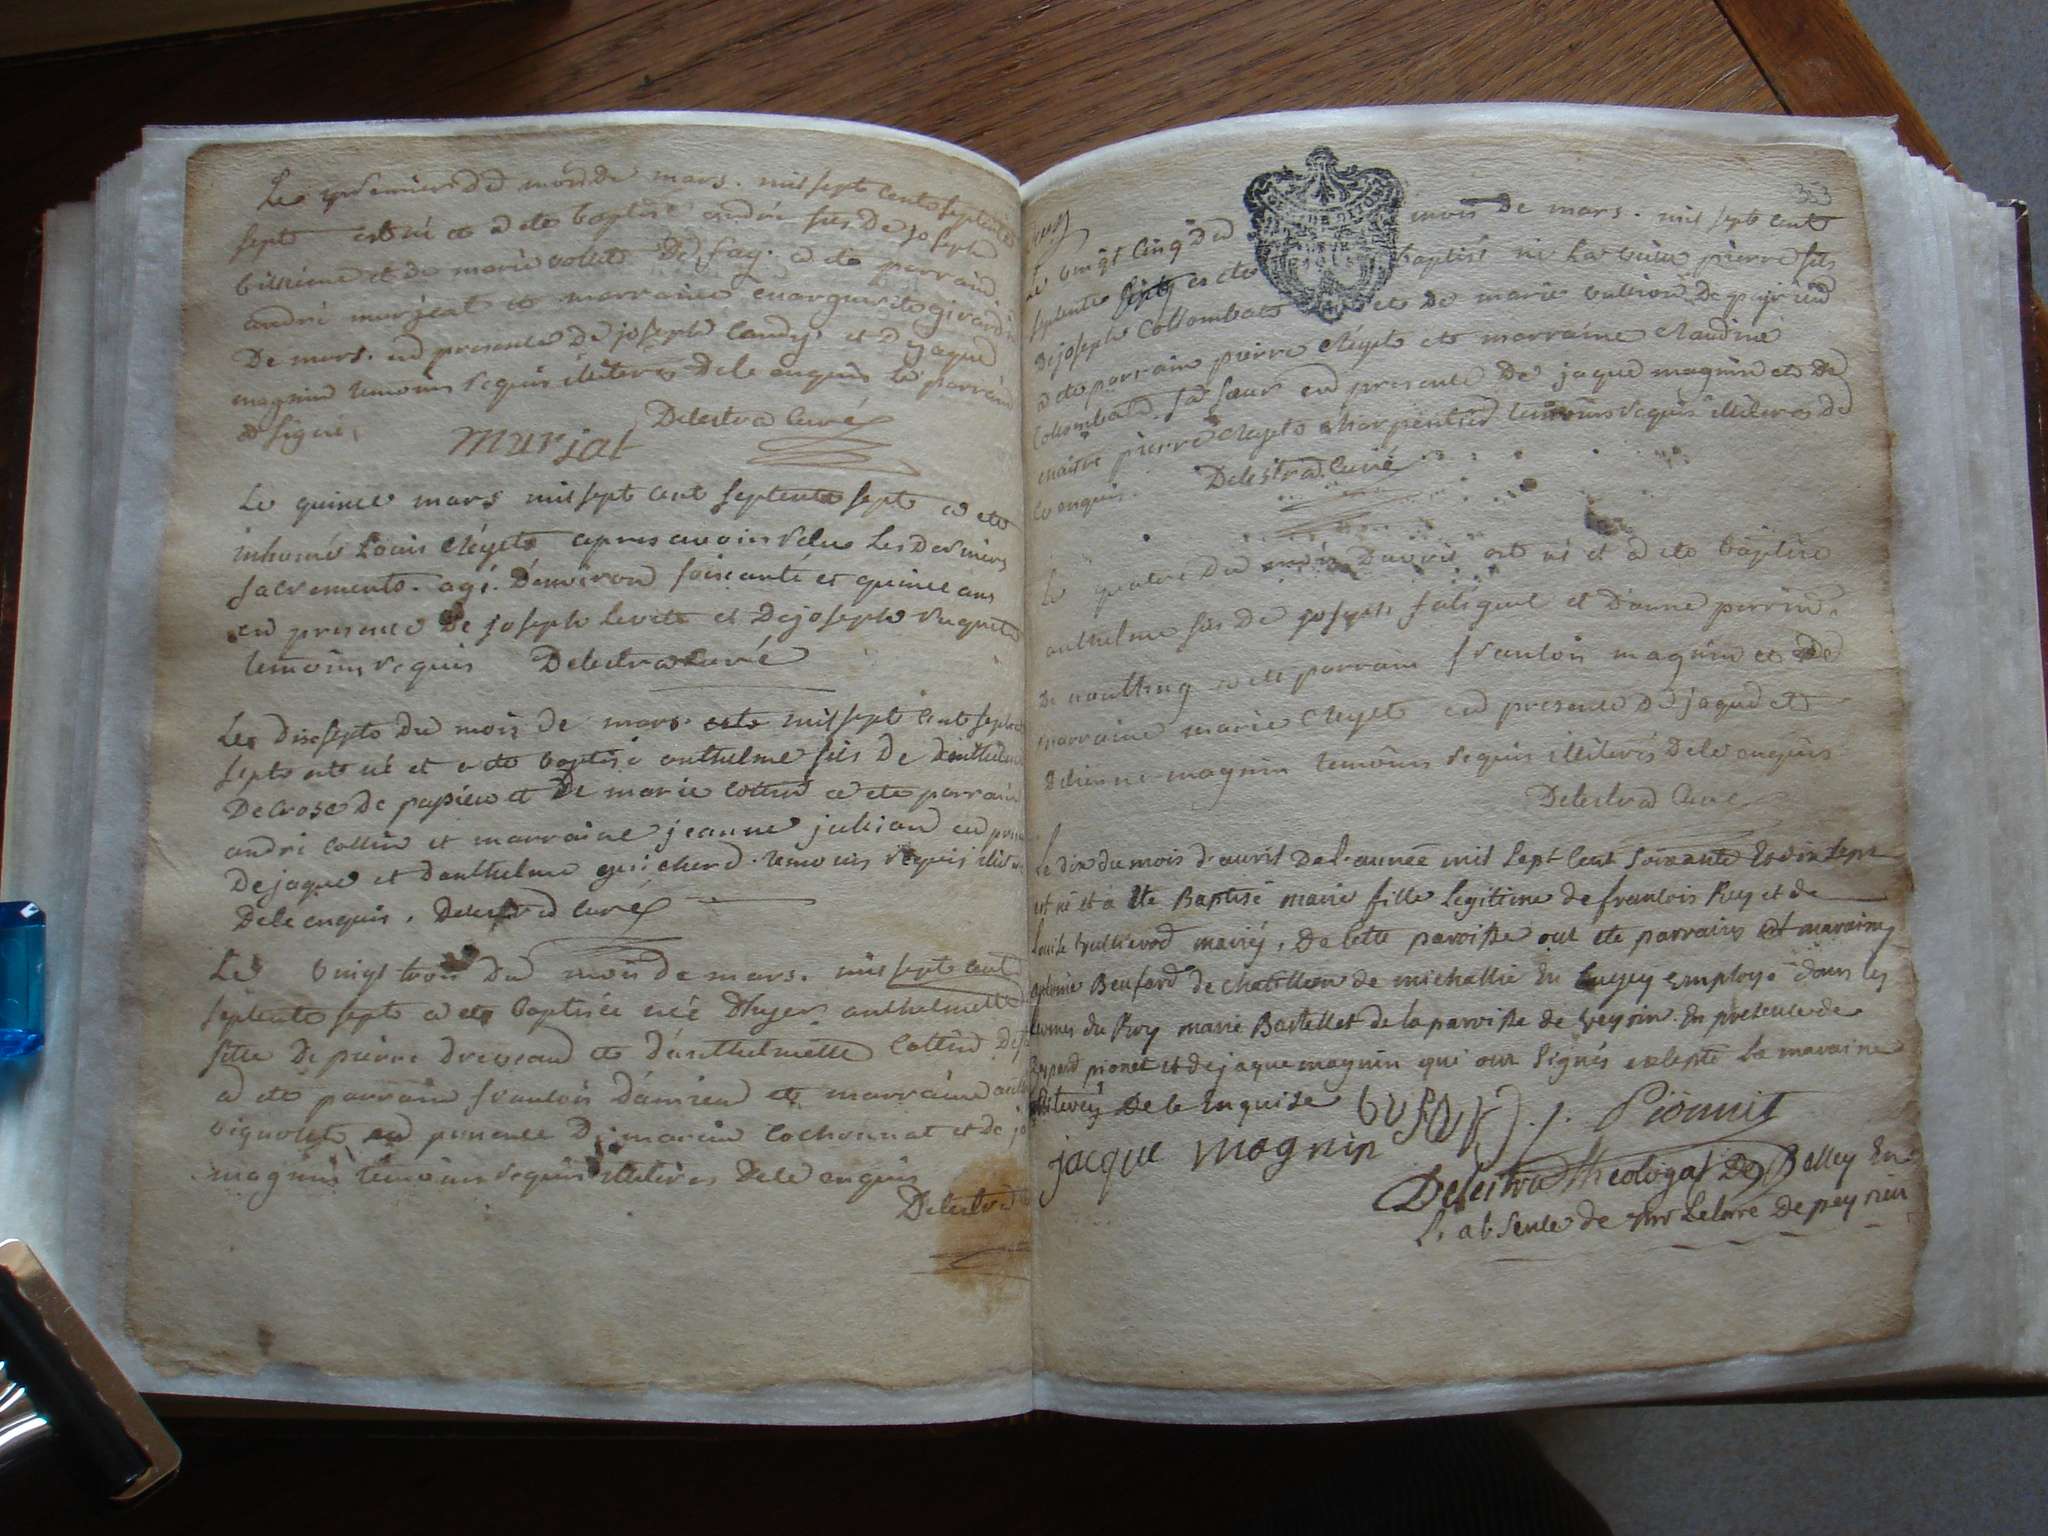 Le premier du mois de mars. mil sept cents septente
septe est né et a ete baptisé andré fils de joseph
et de marie De fay. a ete parrain
andré murjeat et marraine marguerite girardin
De mars. en presence de joseph Candy et de jaque
magnin temoins requis illiteres de le enquis le parrain
a signé,
Delestra Curé
murjat
Le quince mars mil sept cent septente septe a ete
inhomé Louis Cleyete apres avoir recu Les Derniers
sacremente. agé. D'environ soixante et quince ans
en presence De joseph Levete et De joseph
temoins requis Delestra curé
Le dixsepte Du mois de mars. mil sept cent septente
septe este né et a ete baptisé anthelme fils de D'anthelme
Decrose de papieu et De marie Cottin a ete parrain
andré Cottin et marraine jeanne jullian en
De jaque et d'anthelme guicherd. temoins requis
De le enquis. Delestra Curé
Le vingt trois du mois de mars. mil sept cent
septente septe a ete baptisée néé D'hyer anthelmette
fille De pierre Drevaud et d'anthelmette Cottin
a ete parrain francois Damieu et marraine
vignolet, en presence De marcin Cochonnat et de
magnin temoins requis illiteres de le enquis
Delestra
353
Le vingt cinq Du mois de mars. mil sept cent
septente septe et ete baptisé né La veille pierre fils
De joseph Collombat et de marie vullion De peyrieu
a ete parrain pierre Cleyete et marraine Claudine
Collombat. sa soeur en presence De jaque magnin et de
maitre pierre Cleyete charpentier temoins requis illiteres de
le enquis. Delestra Curé
Le quatre Du mois D'avril est né et a ete baptisé
anthelme fils de joseph faliquet et D'anne perrin.
De a ete parrain francois magnin et
marraine marie Cleyete en presence de jaque et
D'etienne magnin temoins requis illiterés De le enquis
Delestra Curé
Le dix du mois d'avril De l'année mil sept cent soixante et dix sept
est né et a ete Baptisé marie fille Legitime de francois Rey et de
Louise mariés, De cette paroisse ont ete parrains et maraine
antoine Beufard de chatillion de michallie En bugey employé dans les
fermes du Roy marie Bartellet de la paroisse de veyrin. En presence de
pionet et de jaque magnin qui ont signés exlepte La maraine
De le Enquise BUFAR J. Pionnit
jacque magnin
Delestra theologal De Belley En
L'absence de mr Lelure De peyrieu